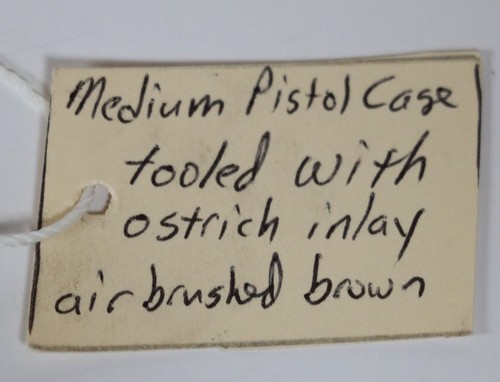 Medium Pistol Case
tooled with
ostrich inlay
airbrushed brown